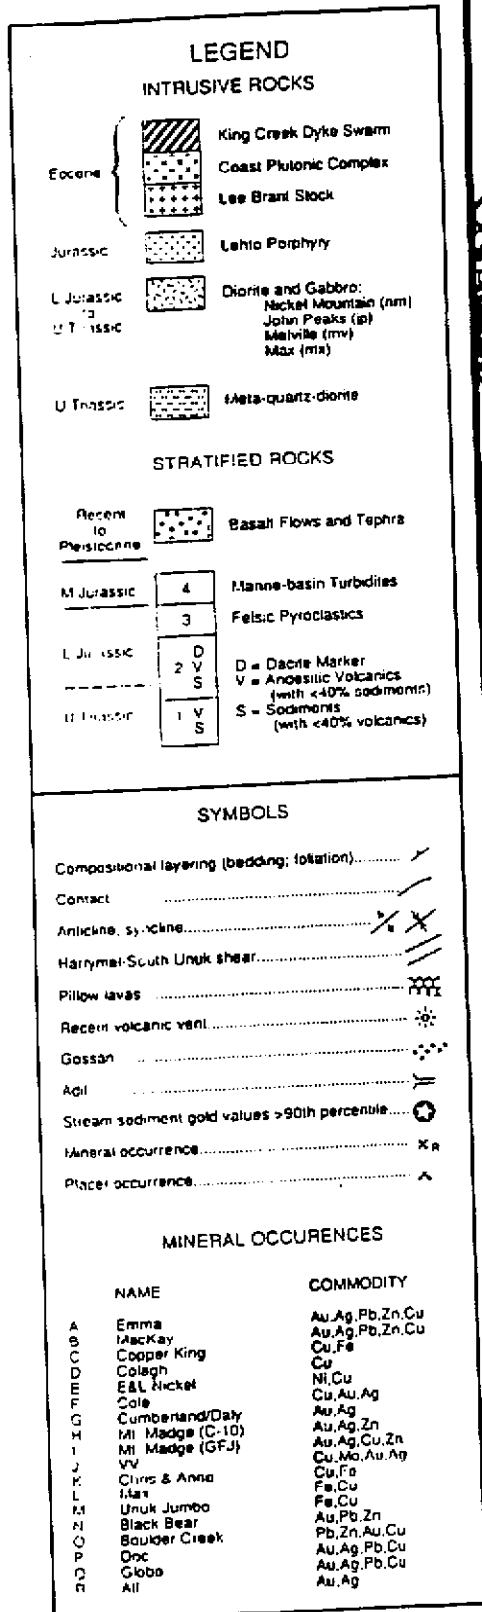 LEGEND
INTRUSIVE ROCKS
Eocene
King Creek Dyke Swarm
Coast Plutonic Complex
Lee Brant Stock
Jurassic
Lehto Porphyry
L Jurassic
to
U Triassic
Diorite and Gabbro:
Nickel Mountain (nm)
John Peaks (jp)
Melville (mv)
Max (mx)
U Triassic
Meta-quartz-diorite
STRATIFIED ROCKS
Recent
to
Pleistocene
Basalt Flows and Tephra
M Jurassic
4
Marine-basin Turbidites
3
Felsic Pyroclastics
L Jurassic
D
2 V
S
D = Dacite Marker
V = Andesitic Volcanics
(with <40% sediments)
S = Sediments
(with <40% volcanics)
U Triassic
1 V
S
SYMBOLS
Compositional layering (bedding; foliation)
Contact
Anticline, syncline
Harrymel-South Unuk shear
Pillow lavas
Recent volcanic vent
Gossan
Adit
Stream sediment gold values >90th percentile
Mineral occurrence x R
Placer occurrence
MINERAL OCCURENCES
NAME COMMODITY
A Emma Au,Ag,Pb,Zn,Cu
B MacKay Au,Ag,Pb,Zn,Cu
C Copper King Cu,Fe
D Colagh Cu
E E&L Nickel Ni,Cu
F Cole Cu,Au,Ag
G Cumberland/Daly Au,Ag
H Mt. Madge (C-10) Au,Ag,Zn
I Mt. Madge (GFJ) Au,Ag,Cu,Zn
J VV Cu,Mo,Au,Ag
K Chris & Anne Cu,Fe
L Max Fe,Cu
M Unuk Jumbo Fe,Cu
N Black Bear Au,Pb,Zn
O Boulder Creek Pb,Zn,Au,Cu
P Doc Au,Ag,Pb,Cu
Q Globe Au,Ag,Pb,Cu
R Alf Au,Ag